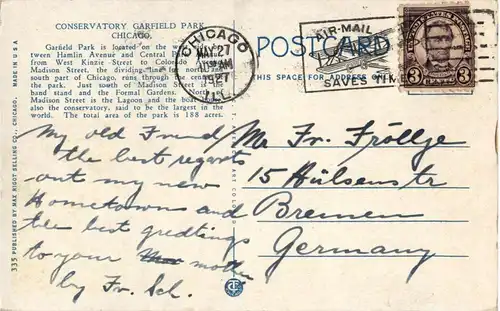 CONSERVATORY GARFIELD PARK,
CHICAGO.
Garfield Park is located on the we
tween Hamlin Avenue and Central P
from West Kinzie Street to Colorado A
Madison Street, the dividing line of north and
south part of Chicago, runs through the cen
the park. Just south of Madison Street is
Band stand and the Formal Gardens. North of
Madison Street, is the Lagoon and the boat
also the conservatory, said to be the largest in the
world. The total area of the park is 188 acres.
MADE IN U.S.A.
335 PUBLISHED BY MAX RIGOT SELLING CO., CHICAGO.
CHICAGO
MAY 27
AM
1927
ILL.
AIR-MAIL
SAVES TIME
POSTCARD
THIS SPACE FOR ADDRESS ONLY
UNITED STATES POSTAGE
3 3
My old Friend
the best regards
out my new
Hometown and
the best gredtings
to your mother
by Fr. Sch.
Mr. Fr. Fröllje
15 Hülsenstr
Bremen
Germany
CT